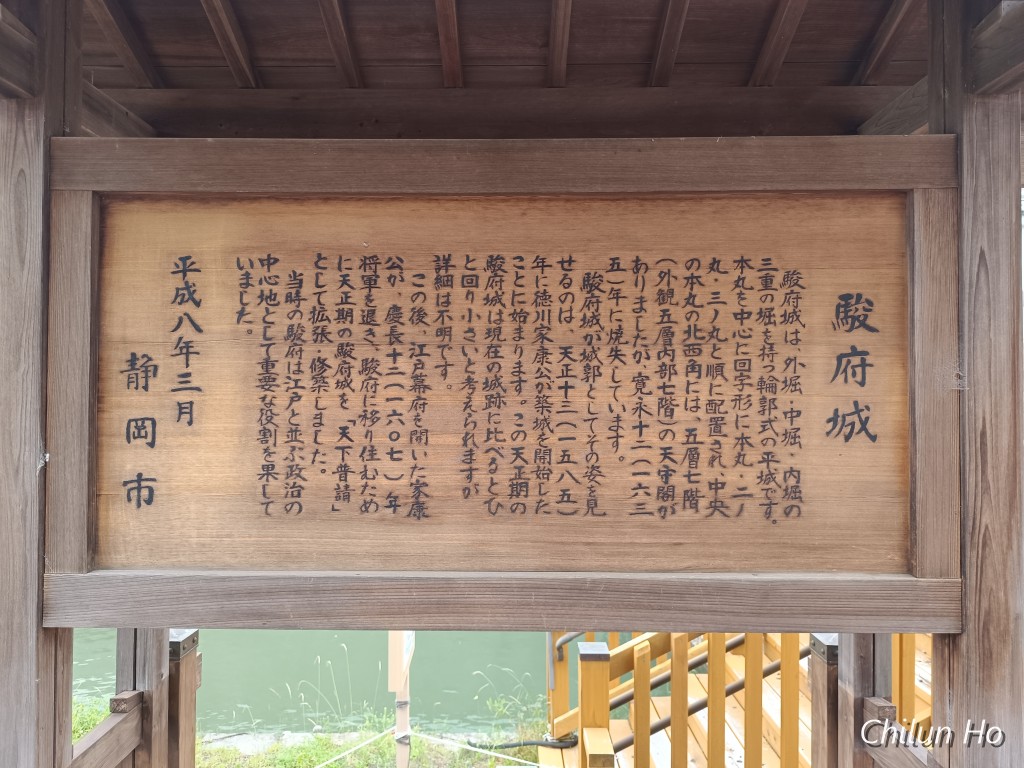 駿府城
駿府城は、外堀・中堀・内堀の
三重の堀を持つ輪郭式の平城です。
本丸を中心に回字形に本丸・二ノ
丸・三ノ丸と順に配置され、中央
の本丸の北西角には、五層七階
(外観五層内部七階)の天守閣が
ありましたが、寛永十二(一六三
五)年に焼失しています。
駿府城が城郭としてその姿を見
せるのは、天正十三(一五八五)
年に徳川家康公が築城を開始した
ことに始まります。この天正期の
駿府城は現在の城跡に比べるとひ
と回り小さいと考えられますが
詳細は不明です。
この後、江戸幕府を開いた家康
公が、慶長十二(一六〇七)年
将軍を退き、駿府に移り住むため
に天正期の駿府城を「天下普請」
として拡張・修築しました。
当時の駿府は江戸と並ぶ政治の
中心地として重要な役割を果して
いました。
平成八年三月
静岡市
Chilun Ho